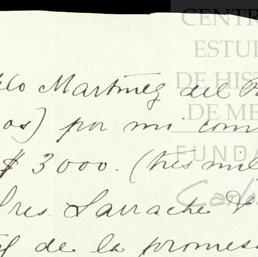 CENTR
ESTU
DE HIS
DE ME
FUNDA
Martinez del
os) por mi
$ 3000. (tres mil
Sres. Larrache
de la promesa